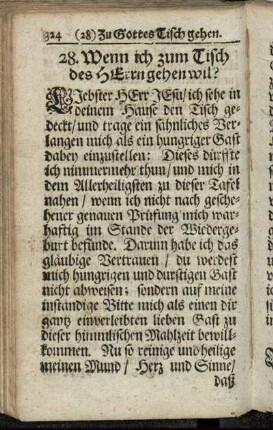 324 (28) Zu Gottes Tisch gehen.
28. Wenn ich zum Tisch
des HErrn gehen wil?
LIebster HErr JEsu/ ich sehe in
deinem Hause den Tisch ge-
deckt/ und trage ein sähnliches Ver-
langen mich als ein hungriger Gast
dabey einzustellen: Dieses dürffte
ich nimmermehr thun/ und mich in
dem Allerheiligsten zu dieser Tafel
nahen/ wenn ich nicht nach gesche-
hener genauen Prüfung mich war-
haftig im Stande der Wiederge-
burt befünde. Darum habe ich das
gläubige Vertrauen/ du werdest
mich hungrigen und durstigen Gast
nicht abweisen; sondern auf meine
inständige Bitte mich als einen dir
gantz einverleibten lieben Gast zu
dieser himmlischen Mahlzeit bewill-
kommen. Nu so reinige und heilige
meinen Mund/ Herz und Sinne/
daß